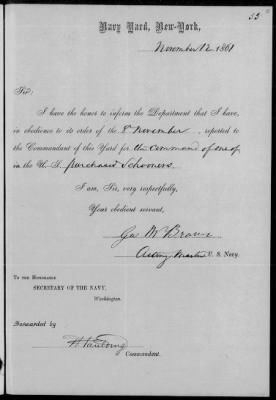 53
Navy Yard, New-York,
November 12 1861
Sir:
I have the honor to inform the Department that I have,
in obedience to its order of the 8 November, reported to
the Commandant of this Yard for the command of one of
in the U. S. purchased Schooners.
I am, Sir, very respectfully,
Your obedient servant,
Geo M Brown
Acting Master U. S. Navy.
To the Honorable
SECRETARY OF THE NAVY,
Washington.
Forwarded by
Commandant.